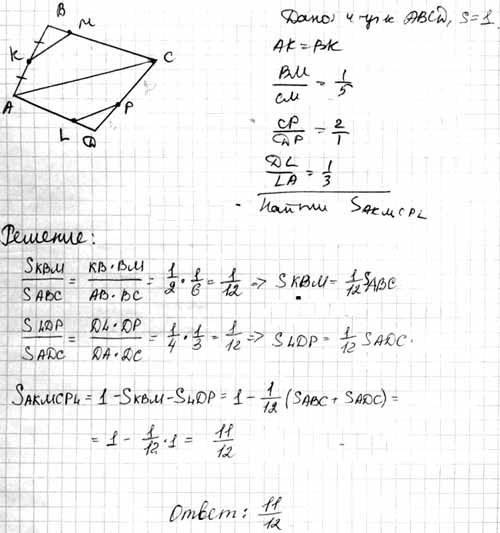 B
M
K
C
A
P
L
D
Дано: 4 угк ABCD, S=1
AK = BK
BM/CM = 1/5
CP/DP = 2/1
DL/LA = 1/3
Найти SAKMCPL
Решение:
SKBM/SABC = KB·BM/AB·BC = 1/2 · 1/6 = 1/12 => SKBM = 1/12 SABC
SLDP/SADC = DL·DP/DA·DC = 1/4 · 1/3 = 1/12 => SLDP = 1/12 SADC.
SAKMCPL = 1 - SKBM - SLDP = 1 - 1/12 (SABC + SADC) =
= 1 - 1/12 · 1 = 11/12
Ответ: 11/12